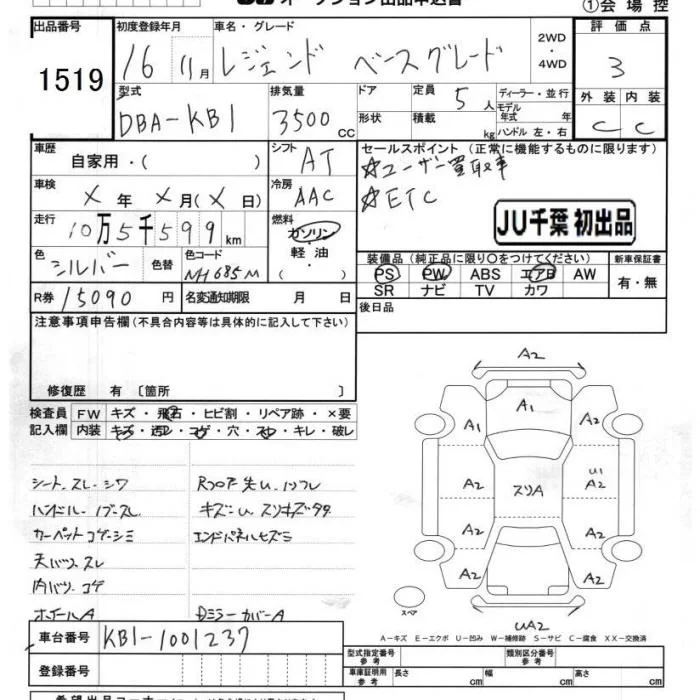 オークション出品申込書
①会場控
出品番号 1519
初度登録年月 16 11月
車名・グレード レジェンド ベースグレード
2WD・4WD
評価点 3
外装 C 内装 C
型式 DBA-KB1
排気量 3500 CC
ドア
形状
定員 5人
積載 kg
ディーラー・並行
モデル年式 年
ハンドル 左・右
車歴 自家用・( )
シフト AT
セールスポイント (正常に機能するものに限ります)
☆ユーザー買取車
☆ETC
車検 × 年 × 月(× )日
冷房 AAC
JU千葉 初出品
走行 10万5千599km
燃料 ガソリン・軽油・
色 シルバー 色替
色コード NH685M
装備品 (純正品に限り○をつけてください)
新車保証書
PS PW ABS エアB AW
SR ナビ TV カワ
有・無
R券 15090円
名変通知期限 月 日
後日品
注意事項申告欄 (不具合内容等は具体的に記入して下さい)
修復歴 有 〔箇所 〕
検査員記入欄
FW キズ・飛石・ヒビ割・リペア跡・×要
内装 キズ・汚レ・コゲ・穴・スレ・キレ・破レ
シート.スレ.シワ
ハンドル.ノブスレ
カーペットコゲ.シミ
天バリ.スレ
内バリ.コゲ
ホイールA
キズ凹スリキズ多々
エンドパネルヒズミ
DミラーカバーA
A2
A1
A2 A2
A2
U1
A2
スリA
A2 A2
A2 A2
スペア
UA2
A-キズ E-エクボ U-凹み W-補修跡 S-サビ C-腐食 XX-交換済
車台番号 KB1-1001237
登録番号
型式指定番号 参考
類別区分番号 参考
車両証明資料 参考 長さ cm 幅 cm 高さ cm